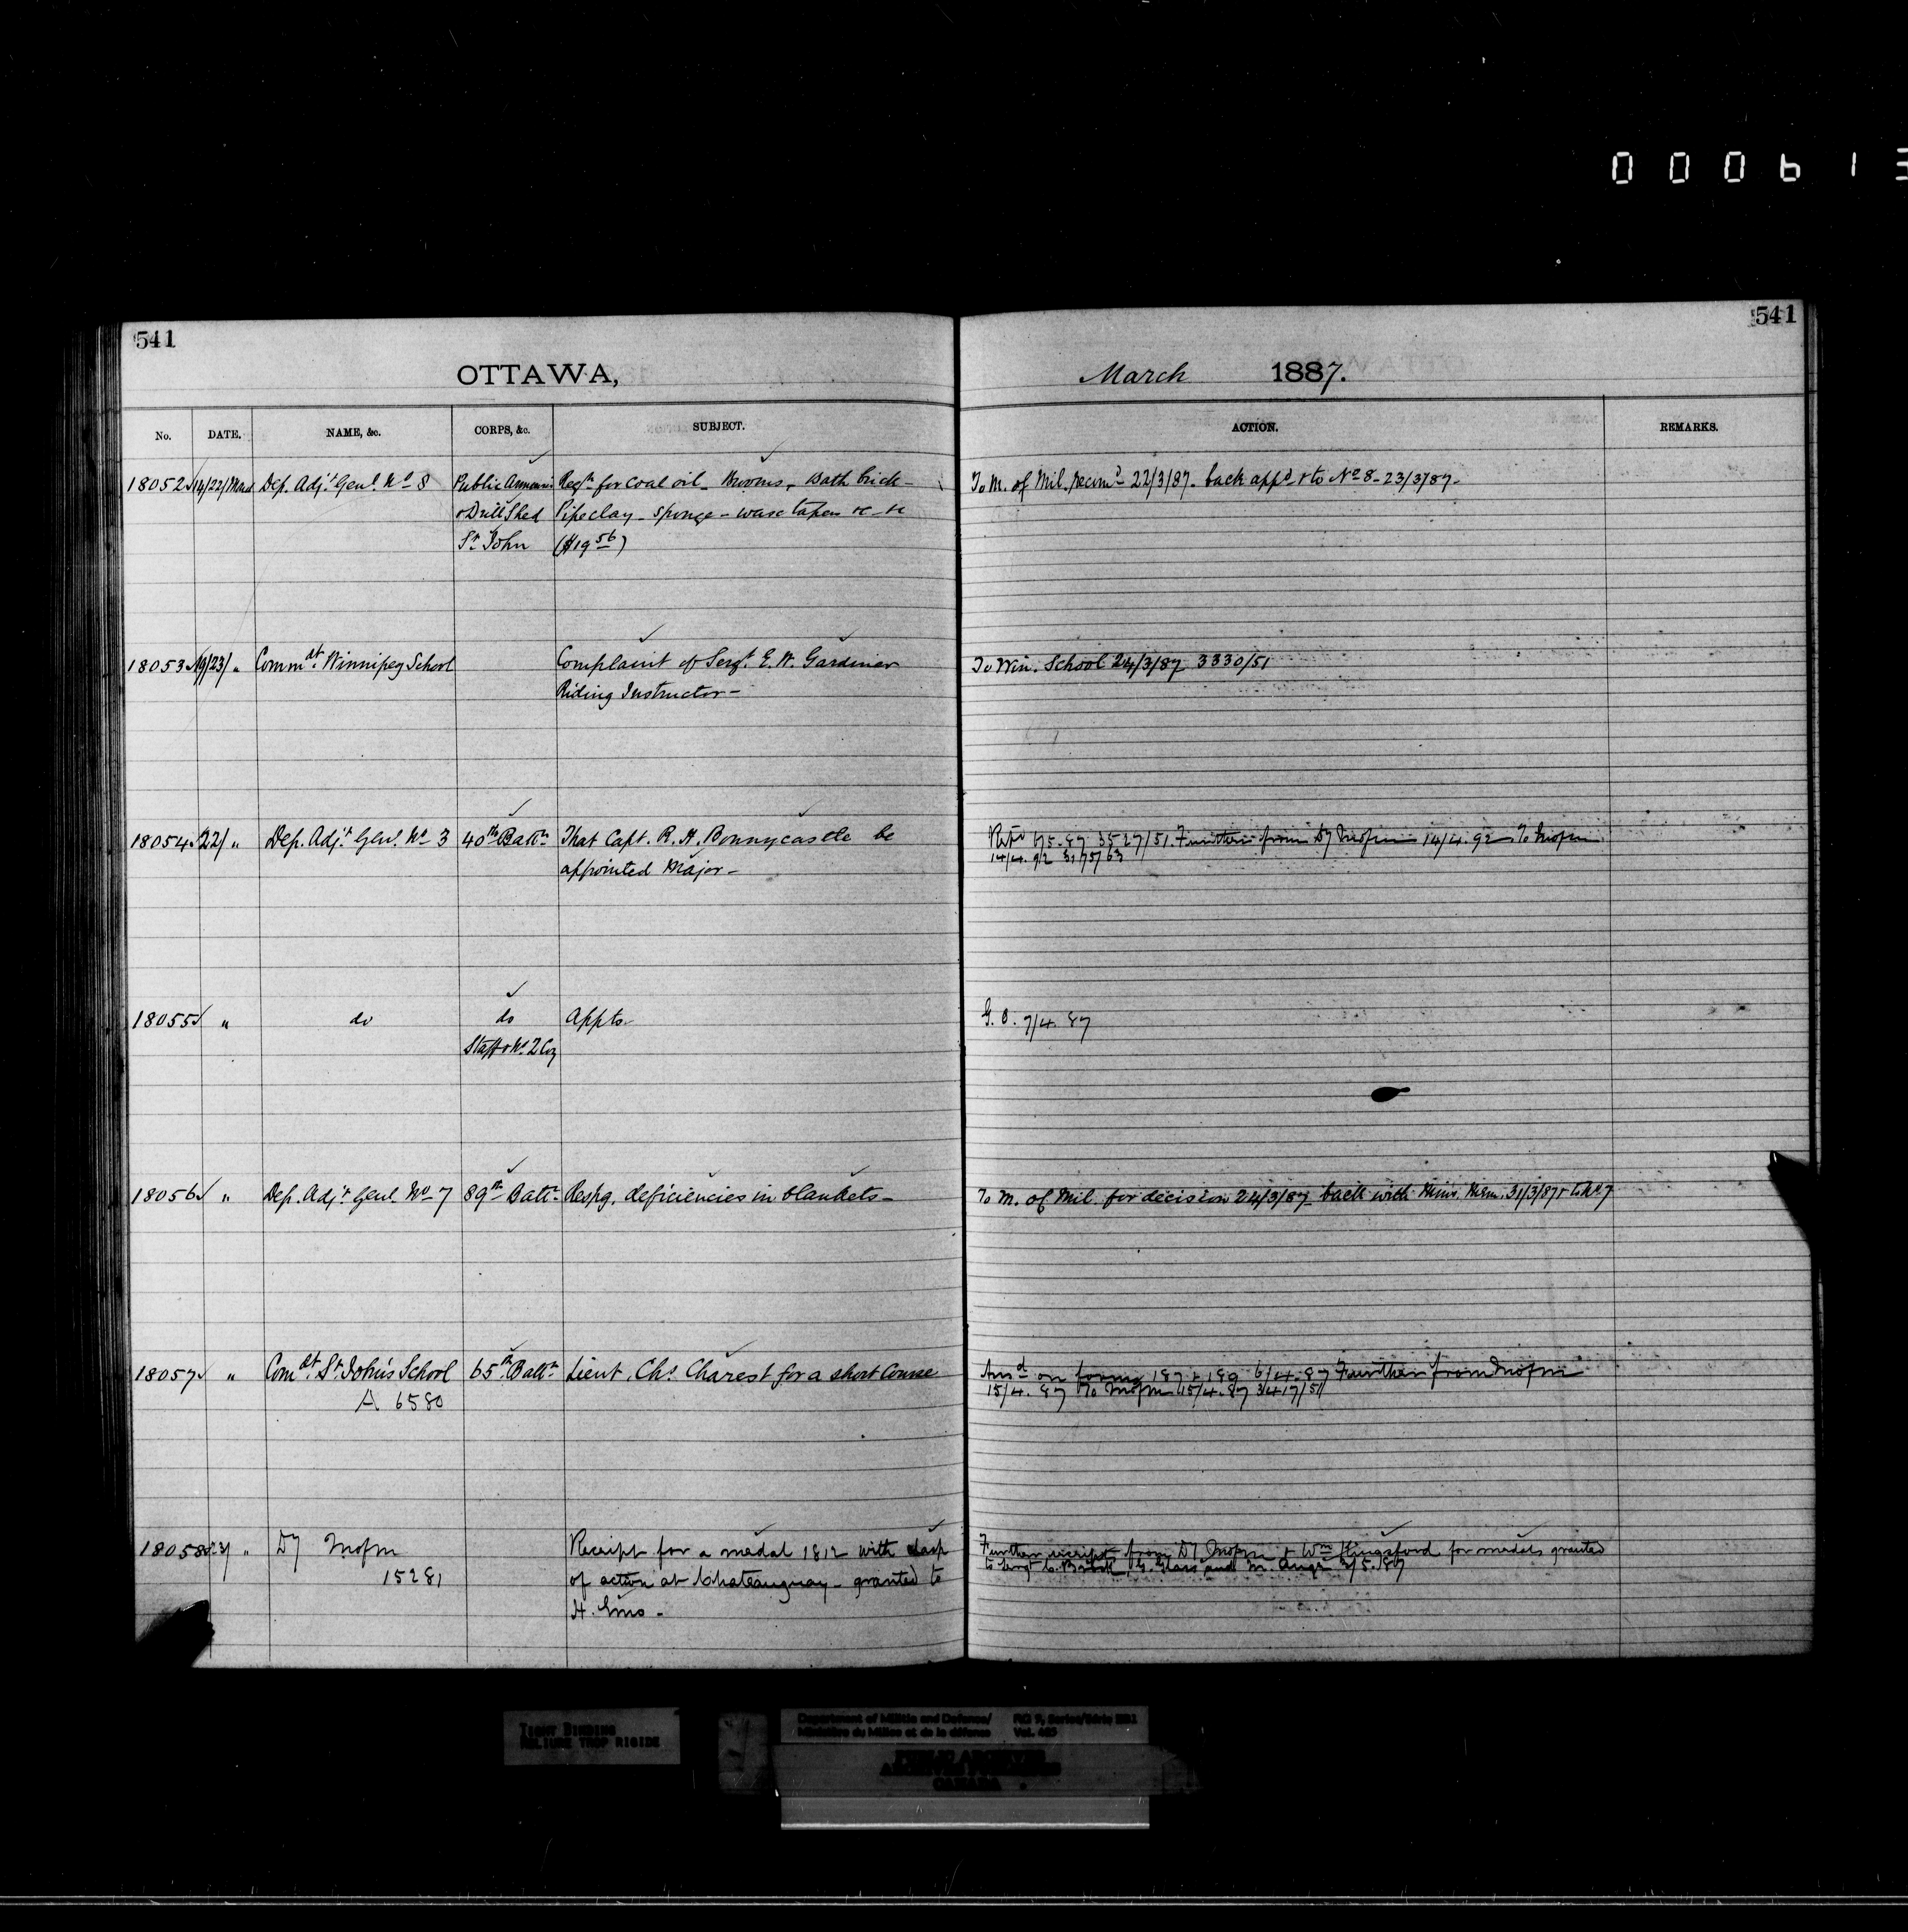 000613
541
541
OTTAWA,
March 1887.
No. DATE. NAME, &c. CORPS, &c. SUBJECT. ACTION. REMARKS.
18052 14/22/ March Dep. Adjt. Genl. No 8 Public Armouries Reqn for coal oil - Brooms - Bath brick - To M. of Mil. recomd 22/3/87. back appd & to No 8 - 23/3/87 -
& Drill Shed Pipeclay - sponge - wax tapers &c &c
St. John ($19 56)
18053 19/23/ " Commdt. Winnipeg School Complaint of Sergt. E. W. Gardiner To Win. School 24/3/87 3330/51
Riding Instructor -
18054 22/ " Dep. Adjt. Genl. No 3 40th Battn That Capt. R. H. Bonnycastle be 6/5.87 3527/51. Further from Dy Mofm 14/4.92 To Mofm
appointed Major - 14/4.92 3175/63
18055 " do do Appts. G. O. 7/4.87
Staff & No. 2 Coy
18056 " Dep. Adjt. Genl. No 7 89th Battn Respg. deficiencies in blankets - To M. of Mil. for decision 24/3/87 - back with Mins. Mem. 31/3/87 & to No. 7
18057 " Comdt. St. John's School 65th Battn Lieut. Chs. Charest for a short Course Ansd on forms 187 & 189 6/4.87 Further from Mofm
A 6580 15/4.87 To Mofm 15/4.87 3417/51
18058 23/ " Dy Mofm Receipt for a medal 1812 with clasp Further receipt from Dy Mofm & Wm Kingsford for medals granted
15281 of action at Chateauguay - granted to to Sergt C. G. Glass and M. 3/5.87
H. -
TIGHT BINDING
RELIURE TROP RIGIDE
Department of Militia and Defence/ RG 9, Series/Série
Ministère du Milice et de la défense Vol.
PUBLIC ARCHIVES
ARCHIVES PUBLIQUES
CANADA